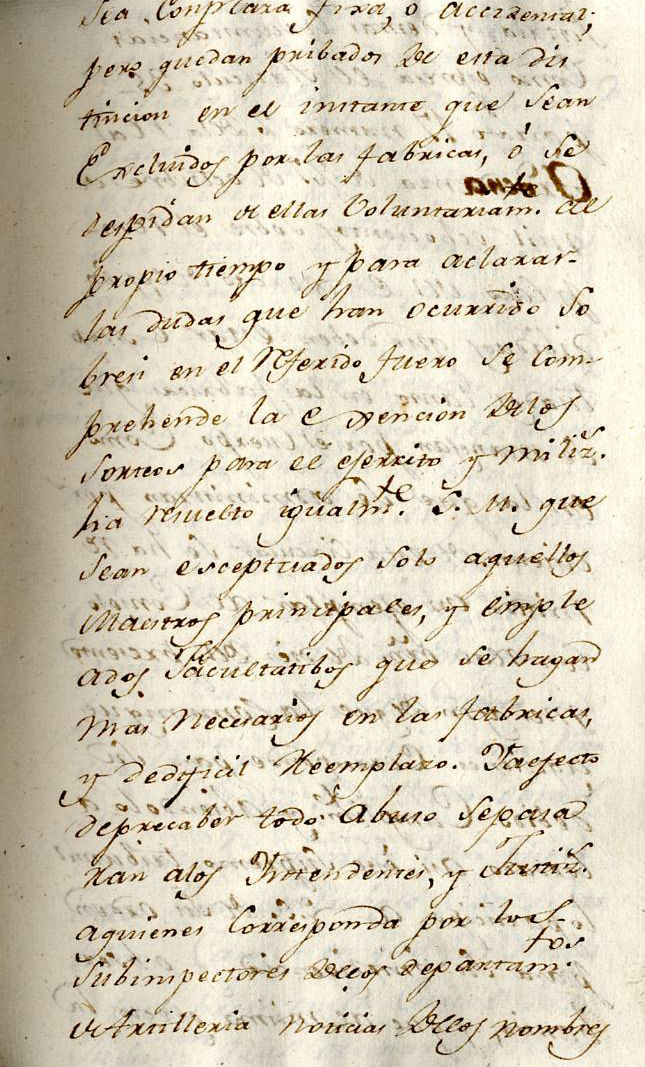 sea Conplaza fixa, o accidental,
pero quedan pribados de esta dis
tincion en el instante que sean
Excluidos por las fabricas, ó se
despidan de ellas Voluntariam.
propio tiempo y para aclarar
las dudas que han ocurrido so
bresi en el Referido fuero se com-
prehende la exencion delos
sorteos para el exercito y miliz.s
ha resuelto igualm.te S. M. que
sean esceptuados solo aquellos
Maestros principales, y emple
ados Facultatibos que se hagan
mas Necesarios en las fabricas,
y dedificil Reemplazo. Yaefecto
deprecaber todo Abuso sepasa
ran alos Yntendentes, y Justiz.s
aquienes Corresponda por los
Subinspectores delos departam.tos
de Artilleria noticias delos nombres